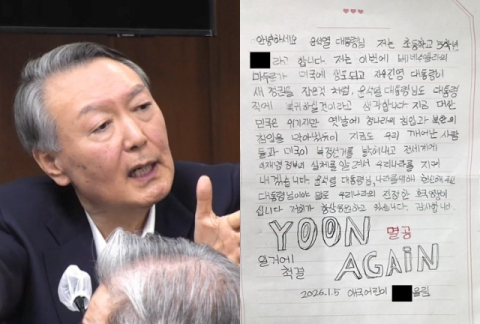 안녕하세요 윤석열 대통령님 저는 초등학교 5학년
라고 합니다. 저는 이번에 베네수엘라의
마두로가 미국에 압송되고 자유진영 대통령이
새 정권을 잡은것 처럼, 윤석열 대통령님도 대통령
직에 복귀하실것이라고 생각합니다 지금 대한
민국은 위기지만 옛날에 청나라의 침입과 북한의
침입을 막아줬듯이 지금도 우리 깨어난 사람
들과 미국이 부정선거를 밝혀내고 전세계에
이재명 정부의 실체를 알려서 우리나라를 지켜
내겠습니다. 윤석열 대통령님, 나라를위해 헌신해주신
대통령님이야 말로 우리나라의 진정한 영웅
입니다 저희가 항상응원하고 있습니다. 감사합니다
YOON 멸공
일거에
척결 AGAIN
2026.1.5 애국어린이 올림